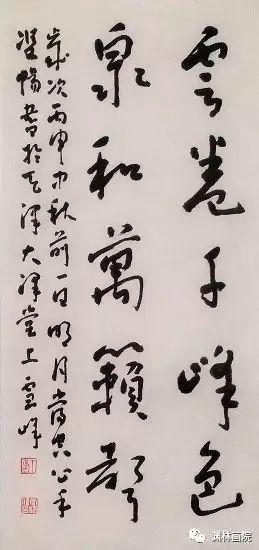 雲卷千峰色
泉和萬籟聲
歲次丙申中秋前一日明月當空心手
雙暢書於天津大澤堂上雲峰
渊林画院